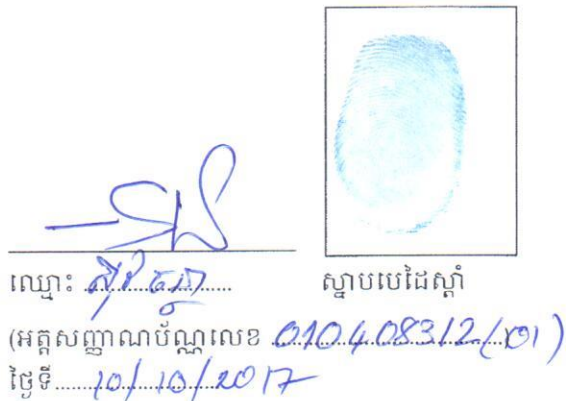 ឈ្មោះ ស៊ុវ ចន្ថា
ស្នាបមេដៃស្តាំ
(អត្តសញ្ញាណប័ណ្ណលេខ 010408312(01)
ថ្ងៃទី 10/10/2017